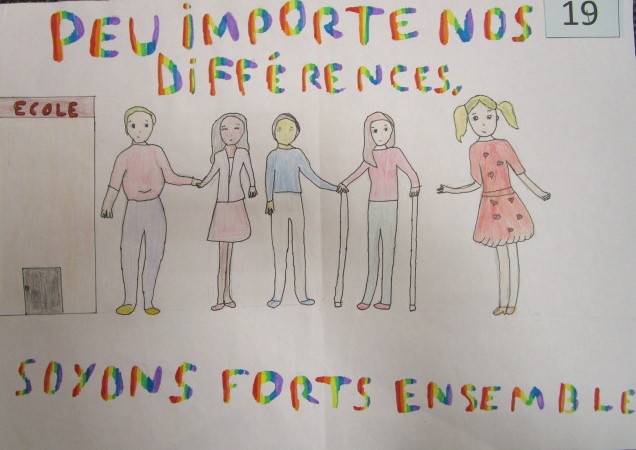 19
PEU iMPORTE NOS
DiFFÉRENCES.
ECOLE
SOYONS FORTS ENSEMBLE